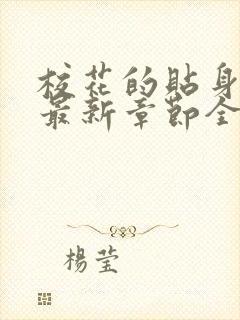 校花的貼身
最新章節全
楊瑩